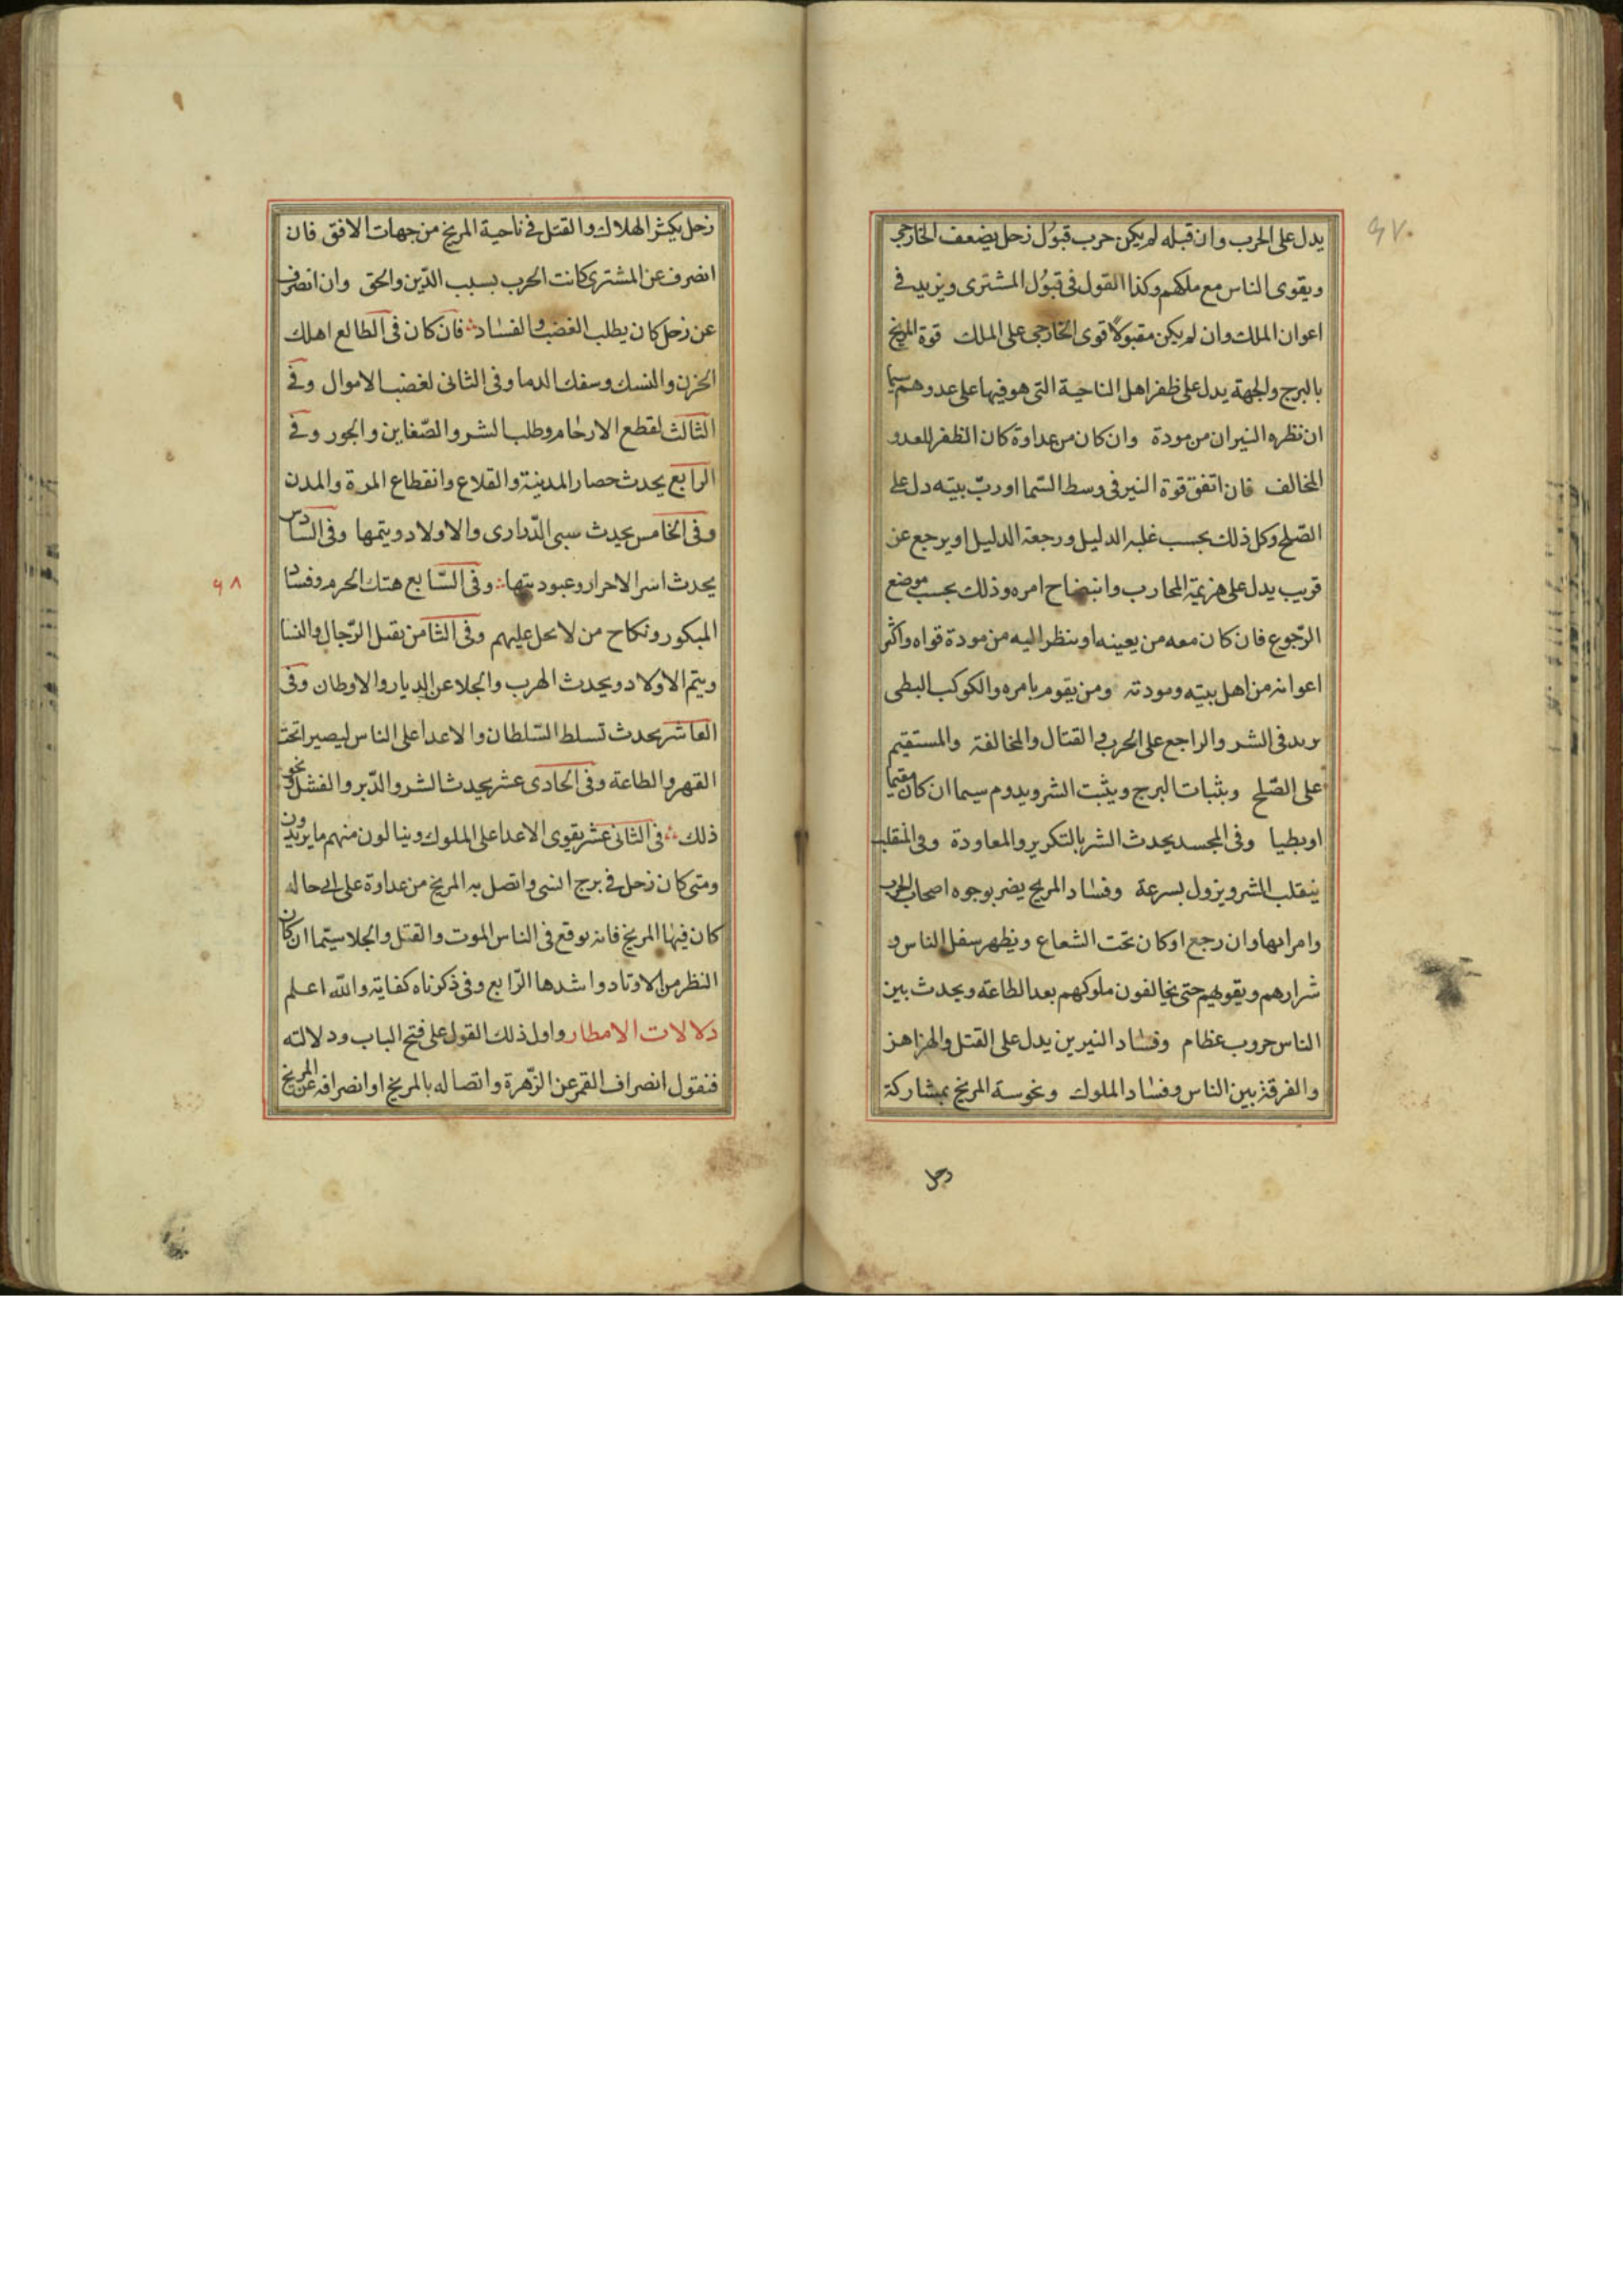 يدل على الحرب وان قبله لم يكن حرب قبول زحل يضعف الخارجى
ويقوى الناس مع ملكهم وكذا القول فى قبول المشترى ويزيد فى
اعوان الملك وان لم يكن مقبولا قوى الخارجى على الملك قوة المريخ
بالبرج والجهة يدل على ظفر اهل الناحية التى هو فيها على عدوهم سيما
ان نظره النيران من مودة وان كان من عداوة كان الظفر للعدو
المخالف فان اتفق قوة النير فى وسط السّما او ربّ بيته دل على
الصّلح وكل ذلك بحسب غلبه الدليل ورجعة الدليل او يرجع عن
قريب يدل على هزيمة المحارب وانبضاح امره وذلك بحسب موضع
الرّجوع فان كان معه من يعينه او ينظر اليه من مودة قواه واكثر
اعوانه من اهل بيته ومودته ومن يقوم بامره والكوكب البطى
يريد فى الشر والراجع على الحرب والقتال والمخالفة والمستقيم
على الصّلح وبثبات البرج ويثبت الشر ويدوم سيما ان كان مقيما
او بطيا وفى المجسد يحدث الشر بالتكرير والمعاودة وفى المنقلب
ينقلب الشر ويزول بسرعة وفساد المريخ يضر بوجوه اصحاب الحرب
وامرايها وان رجع او كان تحت الشعاع ويظهر سفل الناس و
شرارهم ويقويهم حتى يخالفون ملوكهم بعد الطاعة ويحدث بين
الناس حروب عظام وفساد النيرين يدل على القتل والهزاهز
والفرقة بين الناس وفساد الملوك ونحوسة المريخ بمشاركة
زحل
زحل يكثر الهلاك والقتل فى ناحية المريخ من جهات الافق فان
انصرف عن المشترى كانت الحرب بسبب الدّين والحق وان انصرف
عن زحل كان يطلب الغضب والفساد فان كان فى الطالع اهلك
الحزن والنسك وسفك الدما وفى الثانى لغضب الاموال وفى
الثالث لقطع الارحام وطلب الشر والضّغاين والجور وفى
الرابع يحدث حصار المدينة والقلاع وانقطاع المرة والمدن
وفى الخامس يحدث سبى الذّرارى والاولاد ويتمها وفى السّادس
يحدث اسر الاحرار وعبوديتها وفى السّابع هتك الحرم وفساد
المبكور ونكاح من لا يحل عليهم وفى الثامن يقتل الرّجال والنسا
ويتم الاولاد ويحدث الهرب والجلا عن الديار والاوطان وفى
العاشر يحدث تسلط السّلطان والاعدا على الناس ليصيرا تحت
القهر والطاعة وفى الحادى عشر يحدث الشر والدّبر والفشل ونحو
ذلك فى الثانى عشر يقوى الاعدا على الملوك وينالون منهم ما يريدون
ومتى كان زحل فى برج انسى واتصل به المريخ من عداوة على اى حاله
كان فيها المريخ فانه يوقع فى الناس الموت والقتل والجلا سيّما ان كان
النظر من الاوتاد واشدها الرّابع وفى ذكرناه كفاية والله اعلم
دلالات الامطار واول ذلك القول على فتح الباب ودلالته
فنقول انصراف القمر عن الزّهرة واتصاله بالمريخ او انصرافه عن المريخ
٩٨